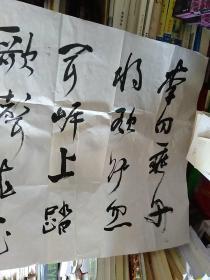 李白乘舟
将欲行忽
闻岸上踏
歌声桃花